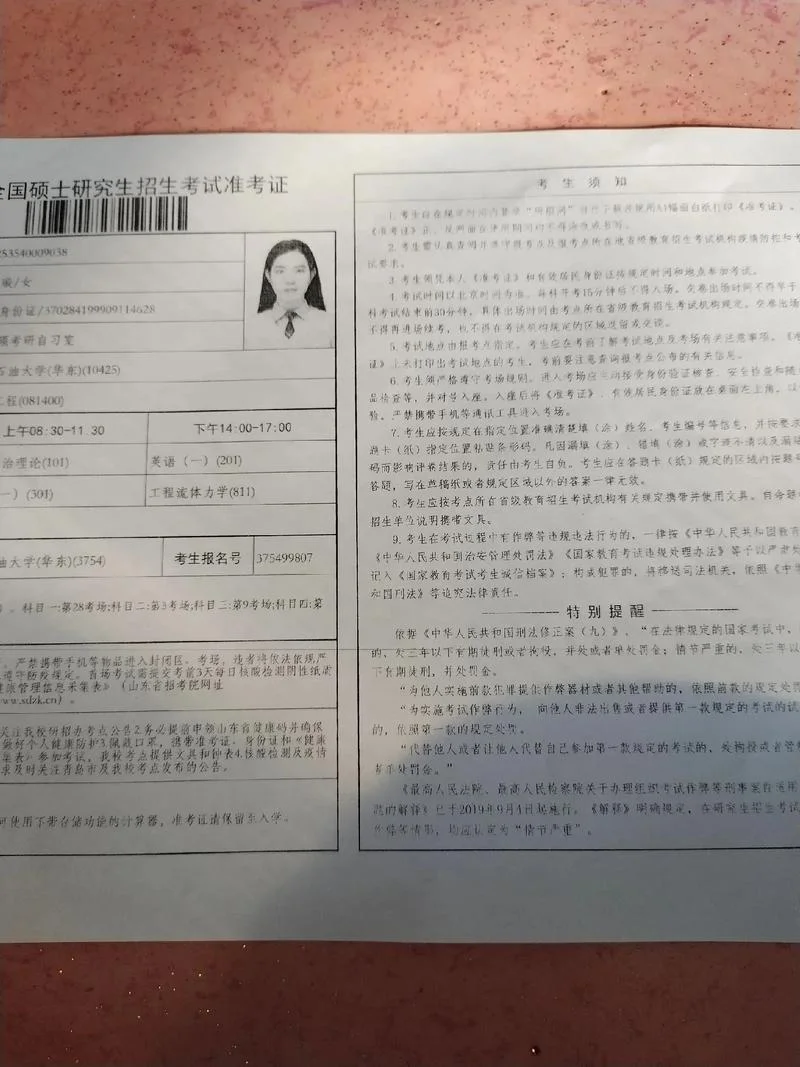 全国硕士研究生招生考试准考证
253540009038
/女
身份证/370284199909114628
考研自习室
石油大学(华东)(10425)
工程(081400)
上午08:30-11.30 下午14:00-17:00
治理论(101) 英语（一）(201)
一）(301) 工程流体力学(811)
油大学(华东)(3754) 考生报名号 375499807
）。科目一:第28考场;科目二:第3考场;科目三:第9考场;科目四:第
严禁携带手机等物品进入封闭区、考场，违者将依法依规严
遵守防疫规定。首场考试需提交考前3天每日核酸检测阴性纸质
健康管理信息采集表》（山东省招考院网址
www.sdzk.cn）。
关注我校研招办考点公告2.务必提前申领山东省健康码并确保
做好个人健康防护3.佩戴口罩，携带准考证、身份证和《健康
集表》参加考试，我校考点提供文具和钟表4.核酸检测及疫情
求及时关注青岛市及我校考点发布的公告。
可使用不带存储功能的计算器，准考证请保留至入学。
考 生 须 知
1.考生应在规定时间内登录“研招网”自行下载并使用A4幅面白纸打印《准考证》。
《准考证》正、反两面在使用期间均不得涂改或书写。
2.考生需认真查阅并遵守报考点及报考点所在地省级教育招生考试机构疫情防控和考
试要求。
3.考生须凭本人《准考证》和有效居民身份证按规定时间和地点参加考试。
4.考试时间以北京时间为准。每科开考15分钟后不得入场。交卷出场时间不得早于
科考试结束前30分钟，具体出场时间由考点所在省级教育招生考试机构规定。交卷出场
不得再进场续考，也不得在考试机构规定的区域逗留或交谈。
5.考试地点由报考点指定。考生应在考前了解考试地点及考场有关注意事项。《准考
证》上未打印出考试地点的考生，考前要注意查询报考点公布的有关信息。
6.考生须严格遵守考场规则。进入考场应主动接受身份验证核查、安全检查和随
品检查等，并对号入座。入座后将《准考证》、有效居民身份证放在桌面左上角，以
验。严禁携带手机等通讯工具进入考场。
7.考生应按规定在指定位置准确清楚填（涂）姓名、考生编号等信息，并按要求
题卡（纸）指定位置粘贴条形码。凡因漏填（涂）、错填（涂）或字迹不清以及漏贴
码而影响评卷结果的，责任由考生自负。考生应在答题卡（纸）规定的区域内按题号
答题，写在草稿纸或者规定区域以外的答案一律无效。
8.考生应按考点所在省级教育招生考试机构有关规定携带并使用文具。自命题
招生单位说明携带文具。
9.考生在考试过程中有作弊等违规违法行为的，一律按《中华人民共和国教育
《中华人民共和国治安管理处罚法》《国家教育考试违规处理办法》等予以严肃处
记入《国家教育考试考生诚信档案》；构成犯罪的，将移送司法机关，依照《中华
和国刑法》等追究法律责任。
特别提醒
依据《中华人民共和国刑法修正案（九）》，“在法律规定的国家考试中，
的，处三年以下有期徒刑或者拘役，并处或者单处罚金；情节严重的，处三年以
下有期徒刑，并处罚金。
“为他人实施前款犯罪提供作弊器材或者其他帮助的，依照前款的规定处罚
“为实施考试作弊行为，向他人非法出售或者提供第一款规定的考试的试
的，依照第一款的规定处罚。
“代替他人或者让他人代替自己参加第一款规定的考试的，处拘役或者管制
者单处罚金。”
《最高人民法院、最高人民检察院关于办理组织考试作弊等刑事案件适用
题的解释》已于2019年9月4日起施行。《解释》明确规定，在研究生招生考试
作弊等情形，均应认定为“情节严重”。